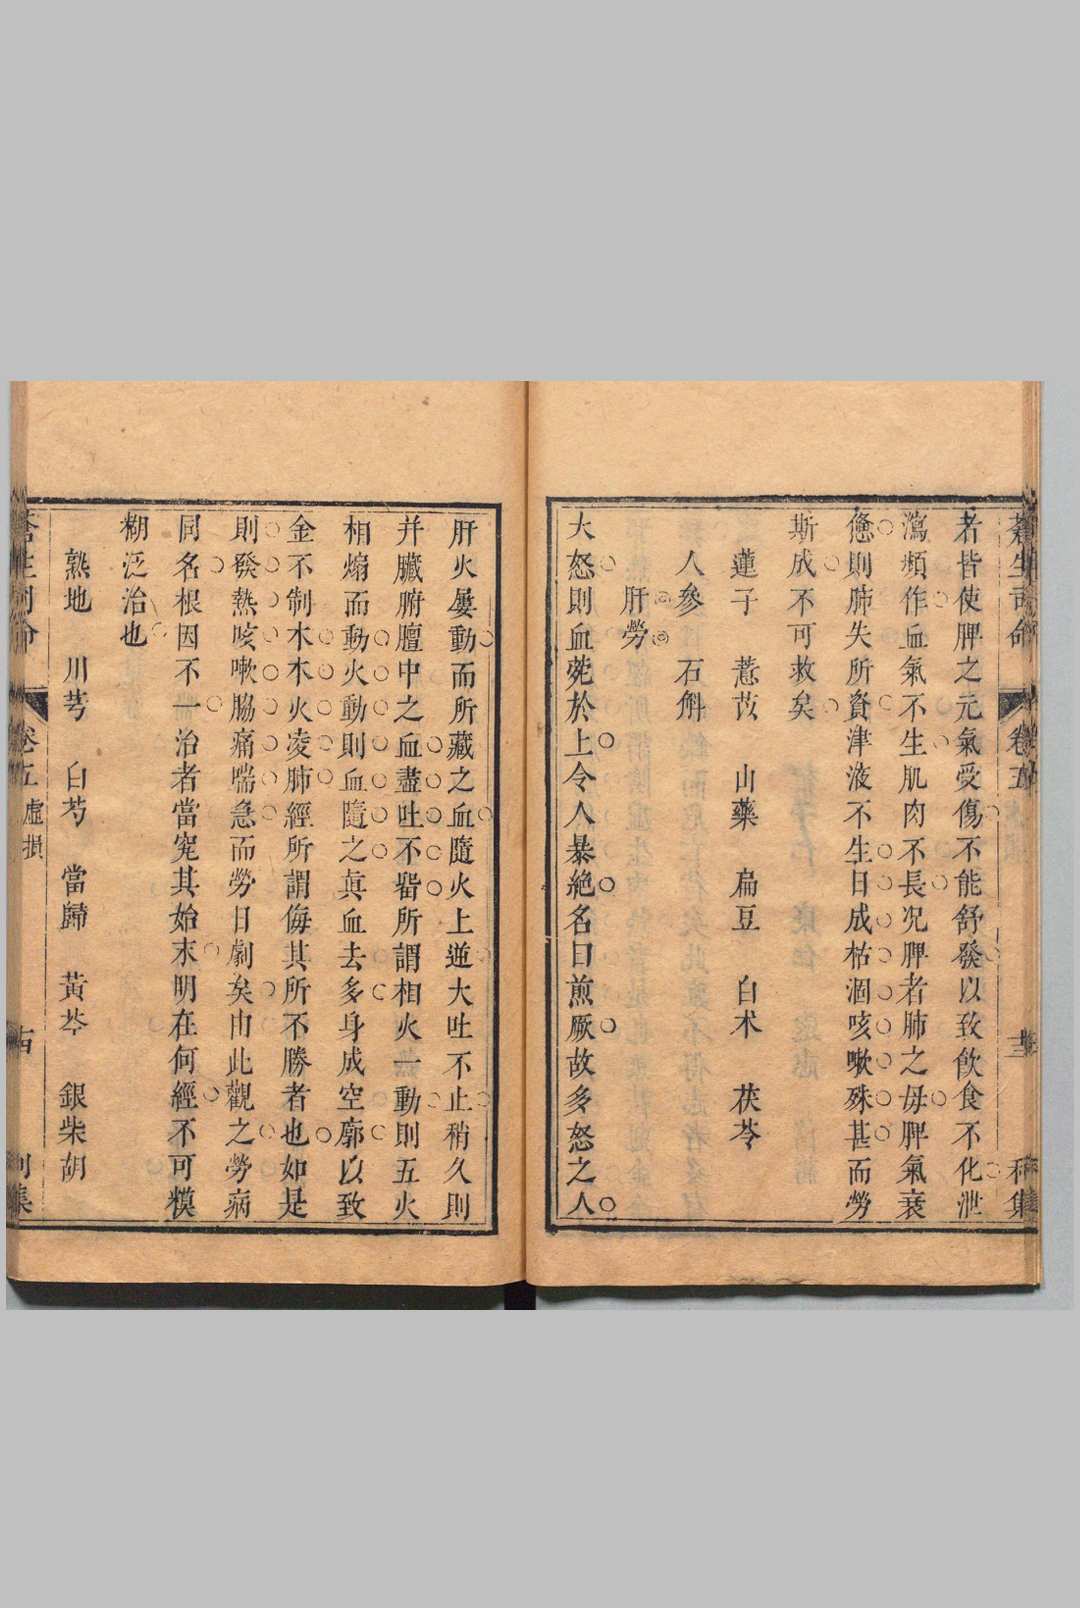 蒼生司命 卷五
者皆使脾之元氣受傷不能舒發以致飲食不化泄
瀉頻作血氣不生肌肉不長況脾者肺之母脾氣衰
憊則肺失所資津液不生日成枯涸咳嗽殊甚而勞
斯成不可救矣
蓮子 薏苡 山藥 扁豆 白术 茯苓
人參 石斛
肝勞
大怒則血菀於上令人暴絶名曰煎厥故多怒之人
肝火屢動而所藏之血隨火上逆大吐不止稍久則
并臟腑膻中之血盡吐不畱所謂相火一動則五火
相煽而動火動則血隨之眞血去多身成空廓以致
金不制木木火凌肺經所謂侮其所不勝者也如是
則發熱咳嗽脇痛喘急而勞日劇矣由此觀之勞病
同名根因不一治者當究其始末明在何經不可糢
糊泛治也
熟地 川芎 白芍 當歸 黃芩 銀柴胡
蒼生司命 卷五 虛損 利集